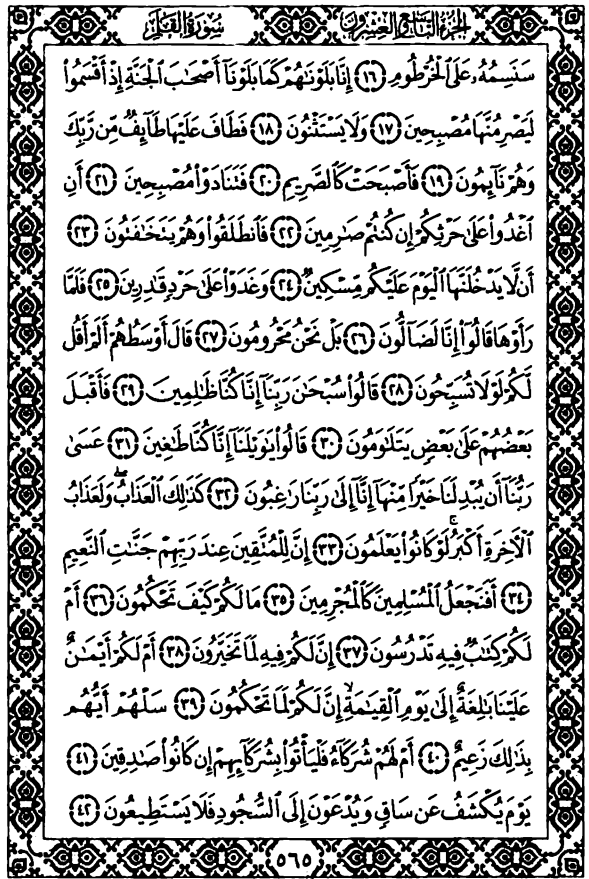 الجُزْءُ التَّاسِعُ وَالعِشْرُونَ
سُورَةُ القَلَمِ
سَنَسِمُهُۥ عَلَى ٱلْخُرْطُومِ ١٦ إِنَّا بَلَوْنَٰهُمْ كَمَا بَلَوْنَآ أَصْحَٰبَ ٱلْجَنَّةِ إِذْ أَقْسَمُوا۟
لَيَصْرِمُنَّهَا مُصْبِحِينَ ١٧ وَلَا يَسْتَثْنُونَ ١٨ فَطَافَ عَلَيْهَا طَآئِفٌ مِّن رَّبِّكَ
وَهُمْ نَآئِمُونَ ١٩ فَأَصْبَحَتْ كَٱلصَّرِيمِ ٢٠ فَتَنَادَوْا۟ مُصْبِحِينَ ٢١ أَنِ
ٱغْدُوا۟ عَلَىٰ حَرْثِكُمْ إِن كُنتُمْ صَٰرِمِينَ ٢٢ فَٱنطَلَقُوا۟ وَهُمْ يَتَخَٰفَتُونَ ٢٣
أَن لَّا يَدْخُلَنَّهَا ٱلْيَوْمَ عَلَيْكُم مِّسْكِينٌ ٢٤ وَغَدَوْا۟ عَلَىٰ حَرْدٍ قَٰدِرِينَ ٢٥ فَلَمَّا
رَأَوْهَا قَالُوٓا۟ إِنَّا لَضَآلُّونَ ٢٦ بَلْ نَحْنُ مَحْرُومُونَ ٢٧ قَالَ أَوْسَطُهُمْ أَلَمْ أَقُل
لَّكُمْ لَوْلَا تُسَبِّحُونَ ٢٨ قَالُوا۟ سُبْحَٰنَ رَبِّنَآ إِنَّا كُنَّا ظَٰلِمِينَ ٢٩ فَأَقْبَلَ
بَعْضُهُمْ عَلَىٰ بَعْضٍ يَتَلَٰوَمُونَ ٣٠ قَالُوا۟ يَٰوَيْلَنَآ إِنَّا كُنَّا طَٰغِينَ ٣١ عَسَىٰ
رَبُّنَآ أَن يُبْدِلَنَا خَيْرًا مِّنْهَآ إِنَّآ إِلَىٰ رَبِّنَا رَٰغِبُونَ ٣٢ كَذَٰلِكَ ٱلْعَذَابُ ۖ وَلَعَذَابُ
ٱلْأَخِرَةِ أَكْبَرُ ۚ لَوْ كَانُوا۟ يَعْلَمُونَ ٣٣ إِنَّ لِلْمُتَّقِينَ عِندَ رَبِّهِمْ جَنَّٰتِ ٱلنَّعِيمِ
٣٤ أَفَنَجْعَلُ ٱلْمُسْلِمِينَ كَٱلْمُجْرِمِينَ ٣٥ مَا لَكُمْ كَيْفَ تَحْكُمُونَ ٣٦ أَمْ
لَكُمْ كِتَٰبٌ فِيهِ تَدْرُسُونَ ٣٧ إِنَّ لَكُمْ فِيهِ لَمَا تَخَيَّرُونَ ٣٨ أَمْ لَكُمْ أَيْمَٰنٌ
عَلَيْنَا بَٰلِغَةٌ إِلَىٰ يَوْمِ ٱلْقِيَٰمَةِ ۙ إِنَّ لَكُمْ لَمَا تَحْكُمُونَ ٣٩ سَلْهُمْ أَيُّهُم
بِذَٰلِكَ زَعِيمٌ ٤٠ أَمْ لَهُمْ شُرَكَآءُ فَلْيَأْتُوا۟ بِشُرَكَآئِهِمْ إِن كَانُوا۟ صَٰدِقِينَ ٤١
يَوْمَ يُكْشَفُ عَن سَاقٍ وَيُدْعَوْنَ إِلَى ٱلسُّجُودِ فَلَا يَسْتَطِيعُونَ ٤٢
٥٦٥